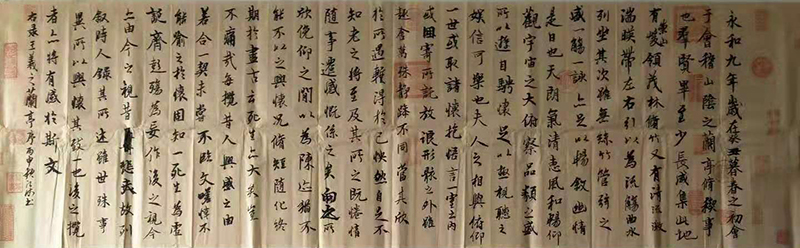 永和九年歲在癸丑暮春之初會
于會稽山陰之蘭亭脩稧事
也羣賢畢至少長咸集此地
有崇山峻領茂林脩竹又有清流激
湍暎帶左右引以為流觴曲水
列坐其次雖無絲竹管弦之
盛一觴一詠亦足以暢敘幽情
是日也天朗氣清惠風和暢仰
觀宇宙之大俯察品類之盛
所以遊目騁懷足以極視聽之
娛信可樂也夫人之相與俯仰
一世或取諸懷抱悟言一室之內
或因寄所託放浪形骸之外雖
趣舍萬殊靜躁不同當其欣
於所遇蹔得於己怏然自足不
知老之將至及其所之既惓情
隨事遷感慨係之矣向之所
欣俛仰之閒以為陳迹猶不
能不以之興懷況脩短隨化終
期於盡古人云死生亦大矣豈
不痛哉每攬昔人興感之由
若合一契未嘗不臨文嗟悼不
能喻之於懷固知一死生為虛
誕齊彭殤為妄作後之視今
亦由今之視昔悲夫故列
敘時人錄其所述雖世殊事
異所以興懷其致一也後之攬
者亦將有感於斯文
右錄王羲之蘭亭序丙申秋